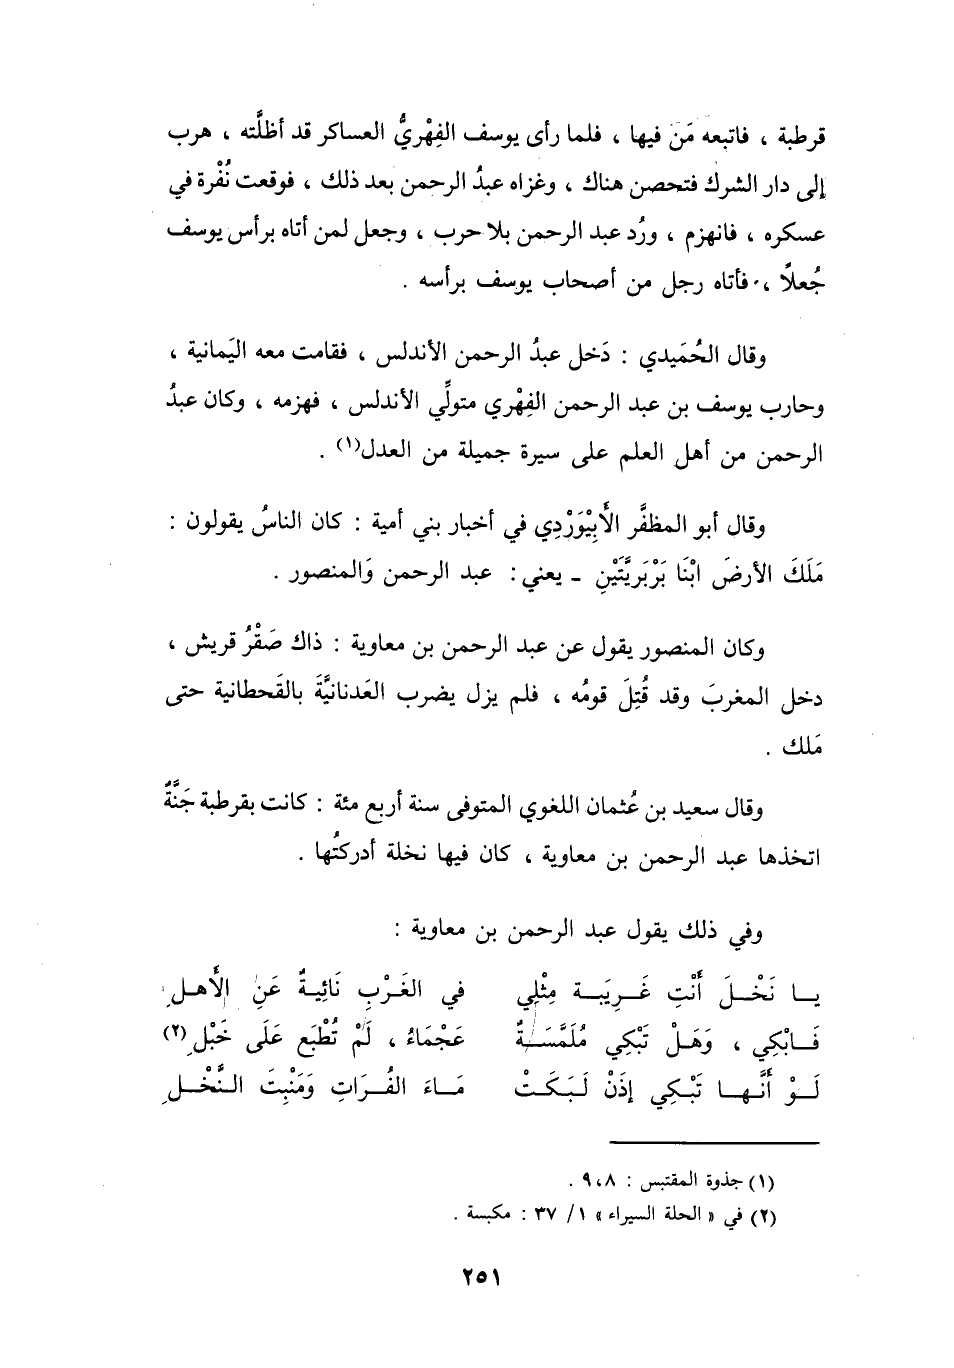 قرطبة ، فاتبعه مَن فيها ، فلما رأى يوسف الفِهْريُّ العساكر قد أظلَّته ، هرب
إلى دار الشرك فتحصن هناك ، وغزاه عبدُ الرحمن بعد ذلك ، فوقعت نُفْرة في
عسكره ، فانهزم ، ورُد عبد الرحمن بلا حرب ، وجعل لمن أتاه برأس يوسف
جُعلاً ، فأتاه رجل من أصحاب يوسف برأسه .
وقال الحُمَيدي : دَخل عبدُ الرحمن الأندلس ، فقامت معه اليَمانية ،
وحارب يوسف بن عبد الرحمن الفِهْري متولِّي الأندلس ، فهزمه ، وكان عبدُ
الرحمن من أهل العلم على سيرة جميلة من العدل(١) .
وقال أبو المظفَّر الأَبِيْوَرْدِي في أخبار بني أمية : كان الناسُ يقولون :
مَلَكَ الأرضَ ابْنَا بَرْبَرِيَّتَيْنِ - يعني : عبد الرحمن وَالمنصور .
وكان المنصور يقول عن عبد الرحمن بن معاوية : ذاك صَقْرُ قريش ،
دخل المغربَ وقد قُتِلَ قومُه ، فلم يزل يضرب العَدنانيَّةَ بالقَحطانية حتى
مَلك .
وقال سعيد بن عُثمان اللغوي المتوفى سنة أربع مئة : كانت بقرطبة جَنَّةٌ
اتخذها عبد الرحمن بن معاوية ، كان فيها نخلة أدركتُها .
وفي ذلك يقول عبد الرحمن بن معاوية :
يــا نَخْــلَ أَنْتِ غَــرِيبَــة مِثْلِي في الغَرْبِ نَائِيةٌ عَنِ الأَهـلِ
فَــابْكِي ، وَهَـلْ تَبْكِي مُلَمَّسَــةٌ عَجْمَاءُ ، لَمْ تُطْبَع عَلَى خَبْلِ(٢)
لَــوْ أَنَّـهـا تَبْكِي إِذَنْ لَـبَـكَـتْ مَــاءَ الفُــرَاتِ وَمَنْبِتَ النَّخْــلِ
(١) جذوة المقتبس : ٩،٨ .
(٢) في « الحلة السيراء » ١ / ٣٧ : مكبسة .
٢٥١